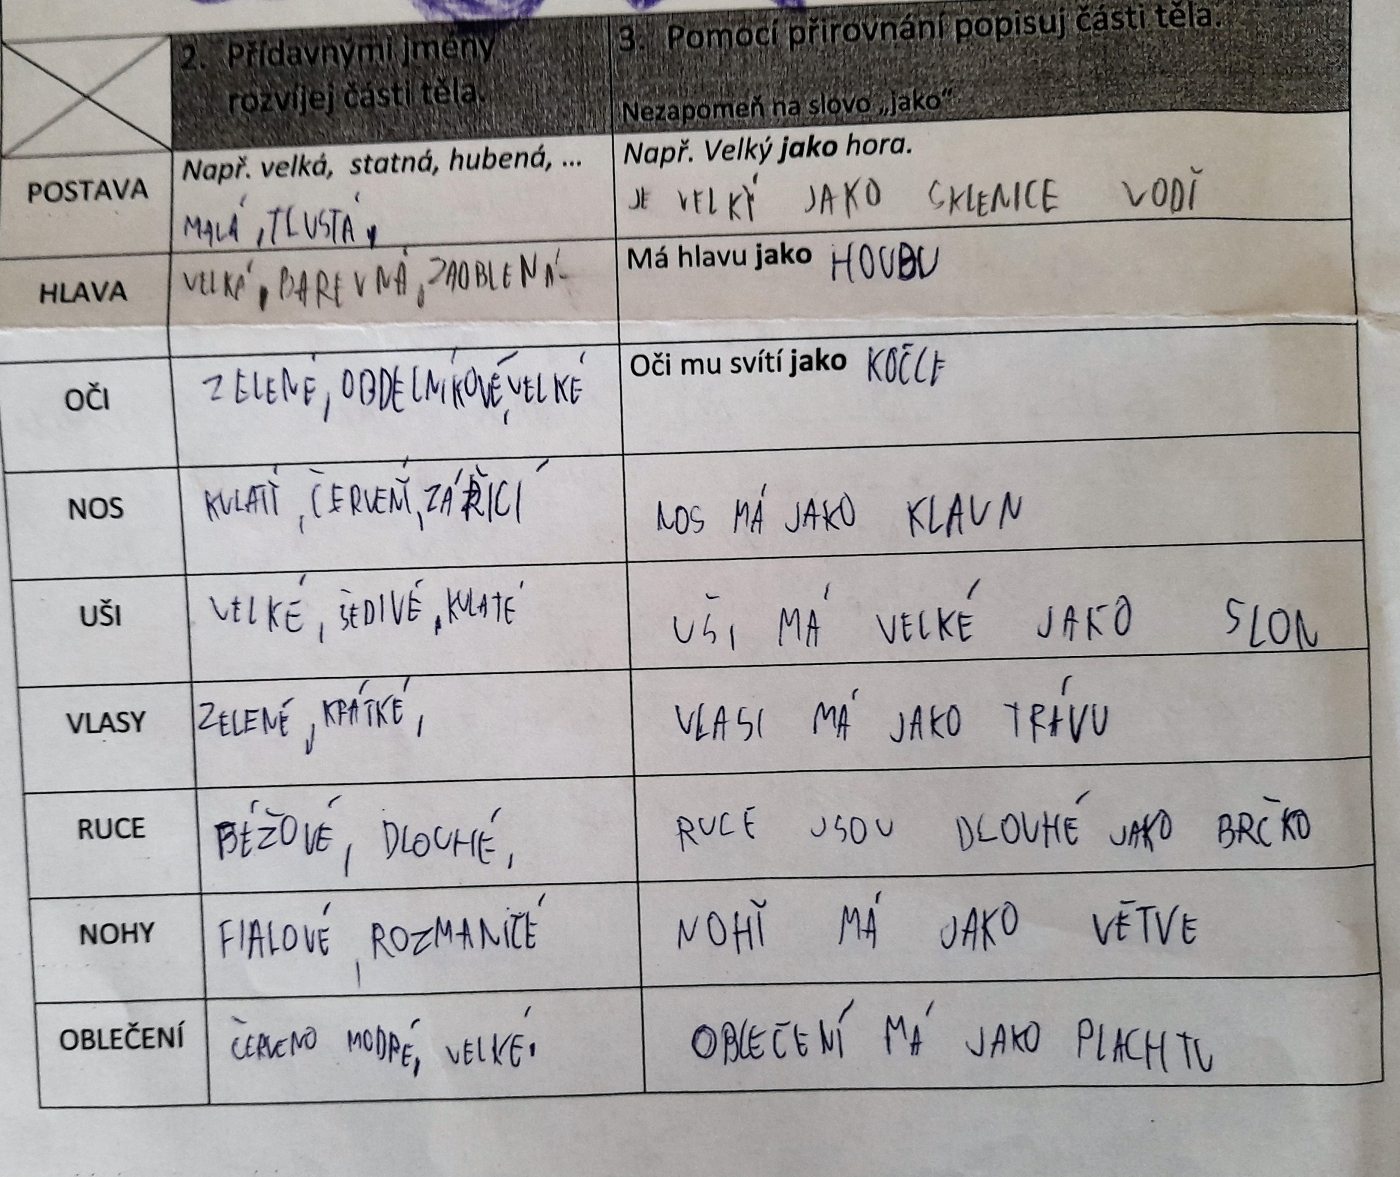 2. Přídavnými jmény
rozvíjej části těla.
3. Pomocí přirovnání popisuj části těla.
Nezapomeň na slovo „jako“
POSTAVA
Např. velká, statná, hubená, ...
MALÁ, TLUSTÁ,
Např. Velký jako hora.
JE VELKÝ JAKO SKLENICE VODÍ
HLAVA
VELKÁ, BAREVNÁ, ZAOBLENÁ
Má hlavu jako HOUBU
OČI
ZELENÉ, OBDELNÍKOVÉ, VELKÉ
Oči mu svítí jako KOČCE
NOS
KULATÍ, ČERVENÍ, ZÁŘÍCÍ
NOS MÁ JAKO KLAUN
UŠI
VELKÉ, ŠEDIVÉ, KULATÉ
UŠI MÁ VELKÉ JAKO SLON
VLASY
ZELENÉ, KRÁTKÉ,
VLASI MÁ JAKO TRÁVU
RUCE
BÉŽOVÉ, DLOUHÉ,
RUCE JSOU DLOUHÉ JAKO BRČKO
NOHY
FIALOVÉ, ROZMANITÉ
NOHÍ MÁ JAKO VĚTVE
OBLEČENÍ
ČERVENO MODRÉ, VELKÉ.
OBLEČENÍ MÁ JAKO PLACHTU